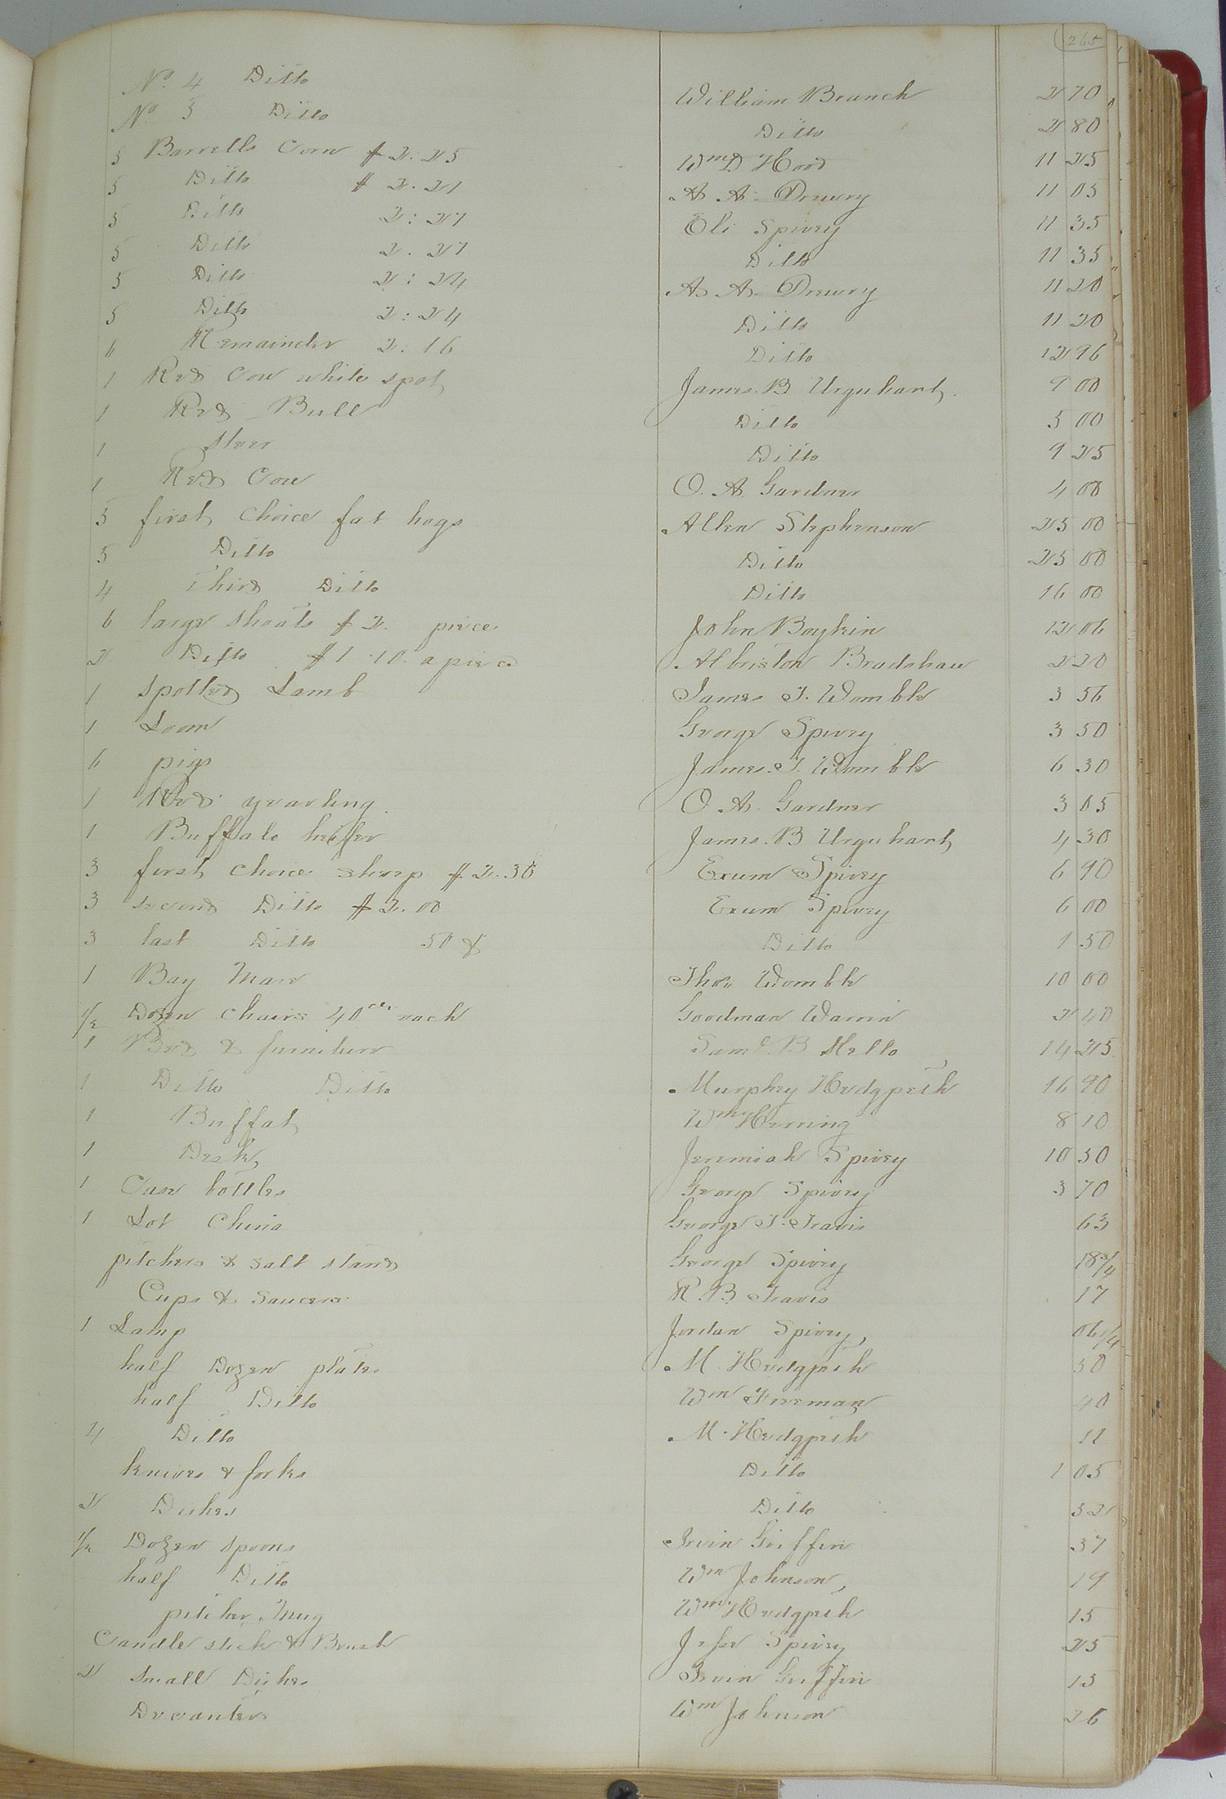 265
No. 4 Ditto William Branch 2 70
No. 5 Ditto Ditto 2 80
5 Barrells Corn $2.25 Wm D Hood 11 25
5 Ditto $2.21 A. A. Drewry 11 05
5 Ditto 2:27 Eli Spivey 11 35
5 Ditto 2.27 Ditto 11 35
5 Ditto 2:24 A. A. Drewry 11 20
5 Ditto 2:24 Ditto 11 20
6 Remainder 2:16 Ditto 12 96
1 Red Cow white spot James B Urquhart 9 00
1 Red Bull Ditto 5 00
1 Steer Ditto 9 25
1 Red Cow O. A. Gardner 4 00
5 first choice fat hogs Allen Stephenson 25 00
5 Ditto Ditto 25 00
4 third Ditto Ditto 16 00
6 large Shoats $2. piece John Boykin 12 06
2 Ditto $1.10 a piece Albriston Bradshaw 2 20
1 spotted Lamb James T. Womble 3 56
1 Loom George Spivey 3 50
6 pigs James. T. Womble 6 30
1 Red yearling O. A. Gardner 3 05
1 Buffalo heifer James. B Urquhart 4 30
3 first choice sheep $2.30 Exum Spivey 6 90
3 second Ditto $2.00 Exum Spivey 6 00
3 last Ditto 50 ¢ Ditto 1 50
1 Bay Mare Thos Womble 10 00
1/2 Dozen chairs 40 cts each Goodman Warrin 2 40
1 Bed & furniture Saml B Hello 14 25
1 Ditto Ditto Murphey Hedgpeth 16 90
1 Buffat Wm Hering 8 10
1 Desk Jeremiah Spivey 10 50
1 Case bottles George Spivey 3 70
1 Lot China George T. Travis 63
pitchers & salt stands George Spivey 18 3/4
Cups & saucers R. B. Travis 17
1 Lamp Jordan Spivey, 06 1/4
half Dozen plates M. Hedgpeth 50
half Ditto Wm Freeman 40
4 Ditto M. Hedgpeth 11
knives & forks Ditto 1 05
2 Dishes Ditto 32
1/2 Dozen spoons Irvin Griffin 37
half Ditto Wm Johnson, 19
pitcher, mug Wm Hedgpeth 15
Candle stick & Brush Jesse Spivey 25
2 small Dishes Irvin Griffin 13
Decanters Wm Johnson 26